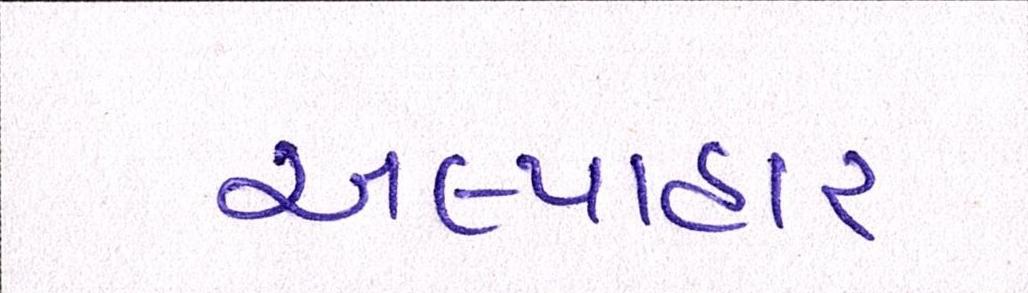 અલ્પાહાર